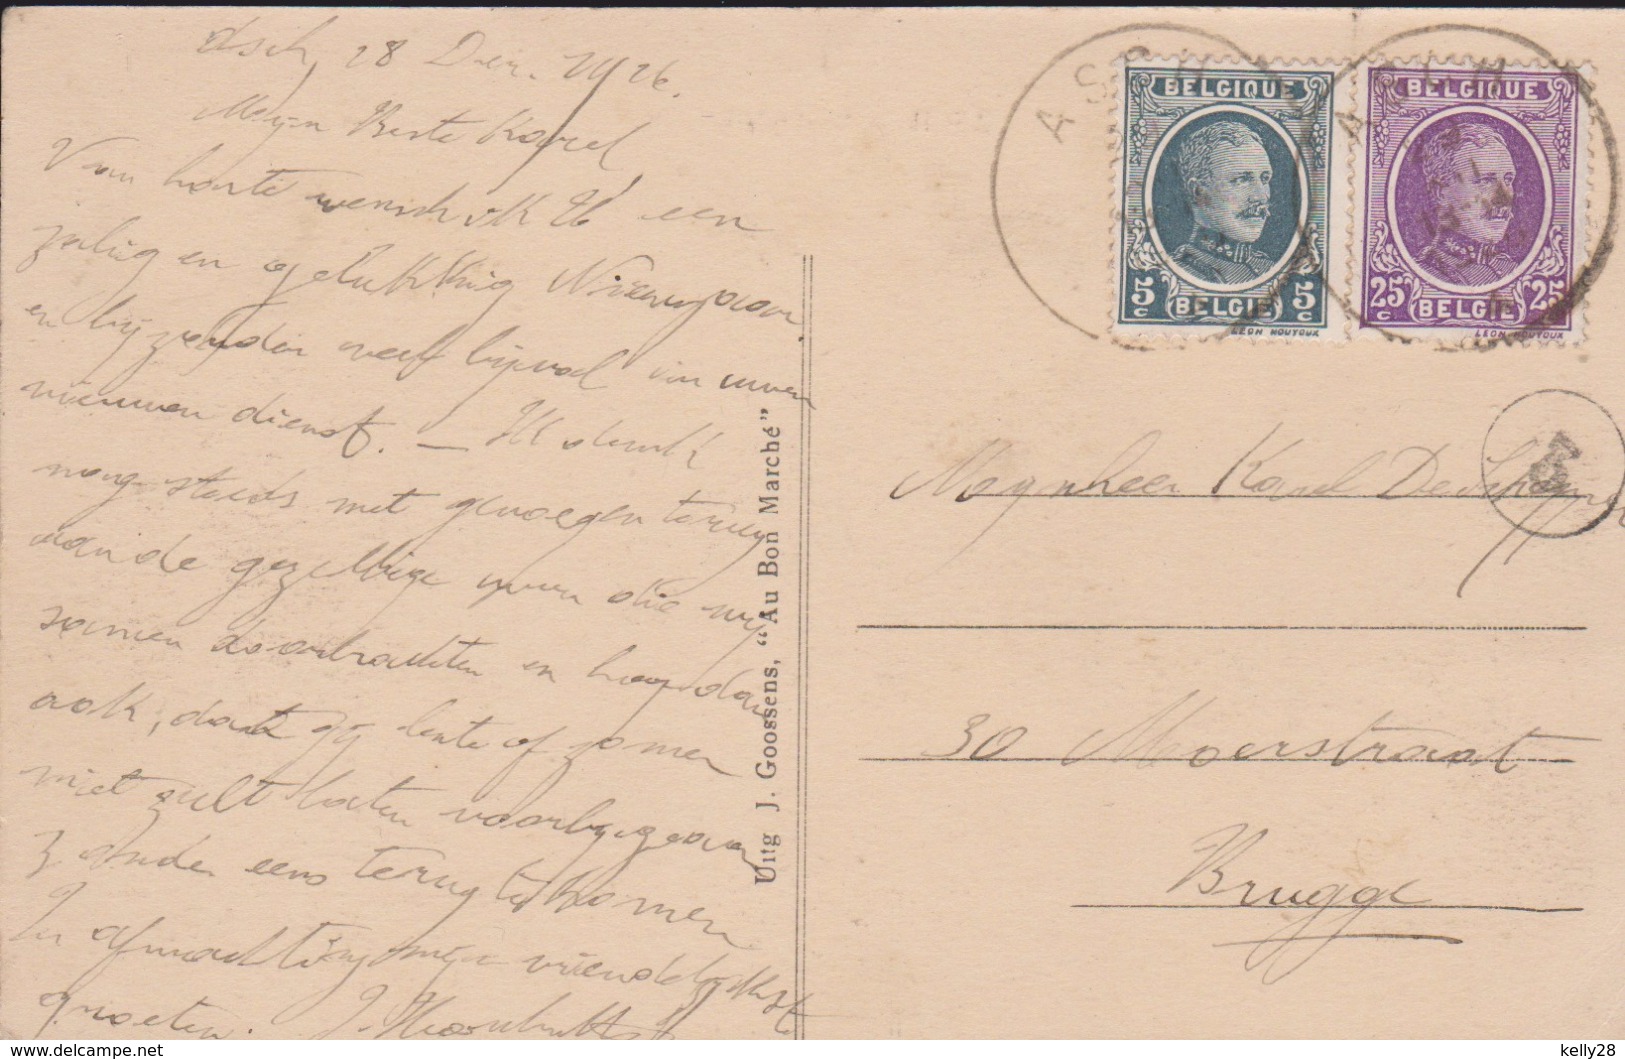 Asch, 28 Dec. 1926.
Mijn Beste Karel,
Van harte wensch ik U een
zalig en gelukkig Nieuwjaar
en bijzonder veel bijval in uwen
nieuwen dienst. — Ik denk
nog steeds met genoegen terug
aan de gezellige uren die wij
samen doorbrachten en hoop dan
ook, dat gij lente of zomer
niet zult laten voorbijgaan
zonder eens terug te komen
In afwachting mijn vriendelijkste
groeten. J.
Uitg J. Goossens, "Au Bon Marché"
ASCH
ASCH
BELGIQUE
5 c BELGIE 5 c
LEON HOUYOUX
BELGIQUE
25 c BELGIE 25 c
LEON HOUYOUX
Mijnheer Karel
30 Moerstraat
Brugge
delcampe.net
kelly28